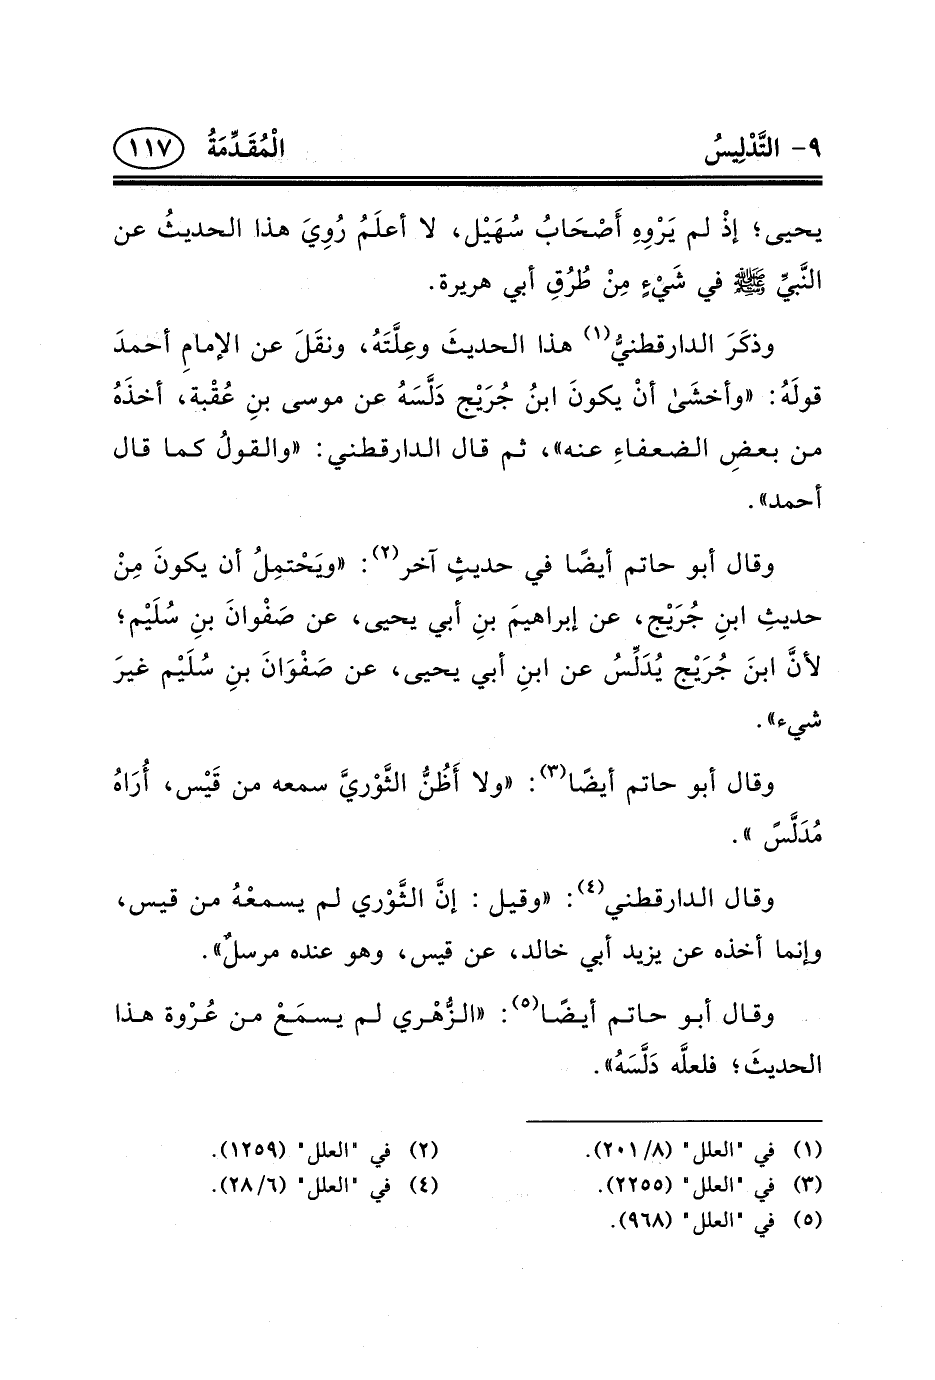 ٩- التَّدْلِيسُ الْمُقَدِّمَةُ ١١٧
يحيى؛ إذْ لم يَرْوِهِ أَصْحَابُ سُهَيْل، لا أعلَمُ رُوِيَ هذا الحديثُ عن
النَّبيِّ ﷺ في شَيْءٍ مِنْ طُرُقِ أبي هريرة.
وذكَرَ الدارقطنيُّ(١) هذا الحديثَ وعِلَّتَهُ، ونقَلَ عن الإمامِ أحمدَ
قولَهُ: «وأخشَىٰ أنْ يكونَ ابنُ جُرَيْج دَلَّسَهُ عن موسى بنِ عُقْبة، أخذَهُ
من بعضِ الضعفاءِ عنه»، ثم قال الدارقطني: «والقولُ كما قال
أحمد».
وقال أبو حاتم أيضًا في حديثٍ آخر(٢): «ويَحْتمِلُ أن يكونَ مِنْ
حديثِ ابنِ جُرَيْج، عن إبراهيمَ بنِ أبي يحيى، عن صَفْوانَ بنِ سُلَيْم؛
لأنَّ ابنَ جُرَيْج يُدَلِّسُ عن ابنِ أبي يحيى، عن صَفْوَانَ بنِ سُلَيْم غيرَ
شيء».
وقال أبو حاتم أيضًا(٣): «ولا أَظُنُّ الثَّوْريَّ سمعه من قَيْس، أُرَاهُ
مُدَلَّسً ».
وقال الدارقطني(٤): «وقيل : إنَّ الثَّوْري لم يسمعْهُ من قيس،
وإنما أخذه عن يزيد أبي خالد، عن قيس، وهو عنده مرسلٌ».
وقال أبو حاتم أيضًا(٥): «الزُّهْري لم يسمَعْ من عُرْوة هذا
الحديثَ؛ فلعلَّه دَلَّسَهُ».
(١) في "العلل" (٢٠١/٨). (٢) في "العلل" (١٢٥٩).
(٣) في "العلل" (٢٢٥٥). (٤) في "العلل" (٢٨/٦).
(٥) في "العلل" (٩٦٨).